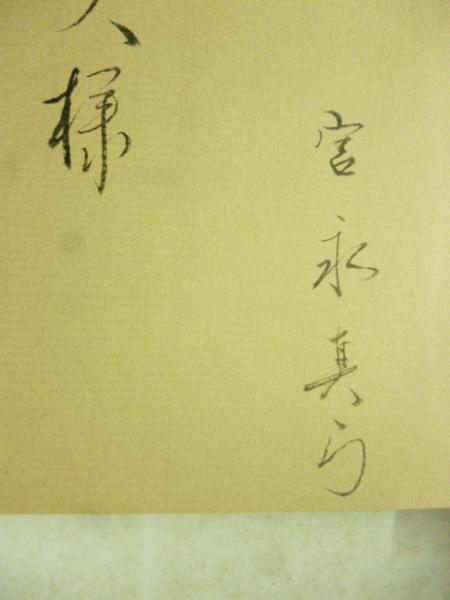 宮永真弓
様